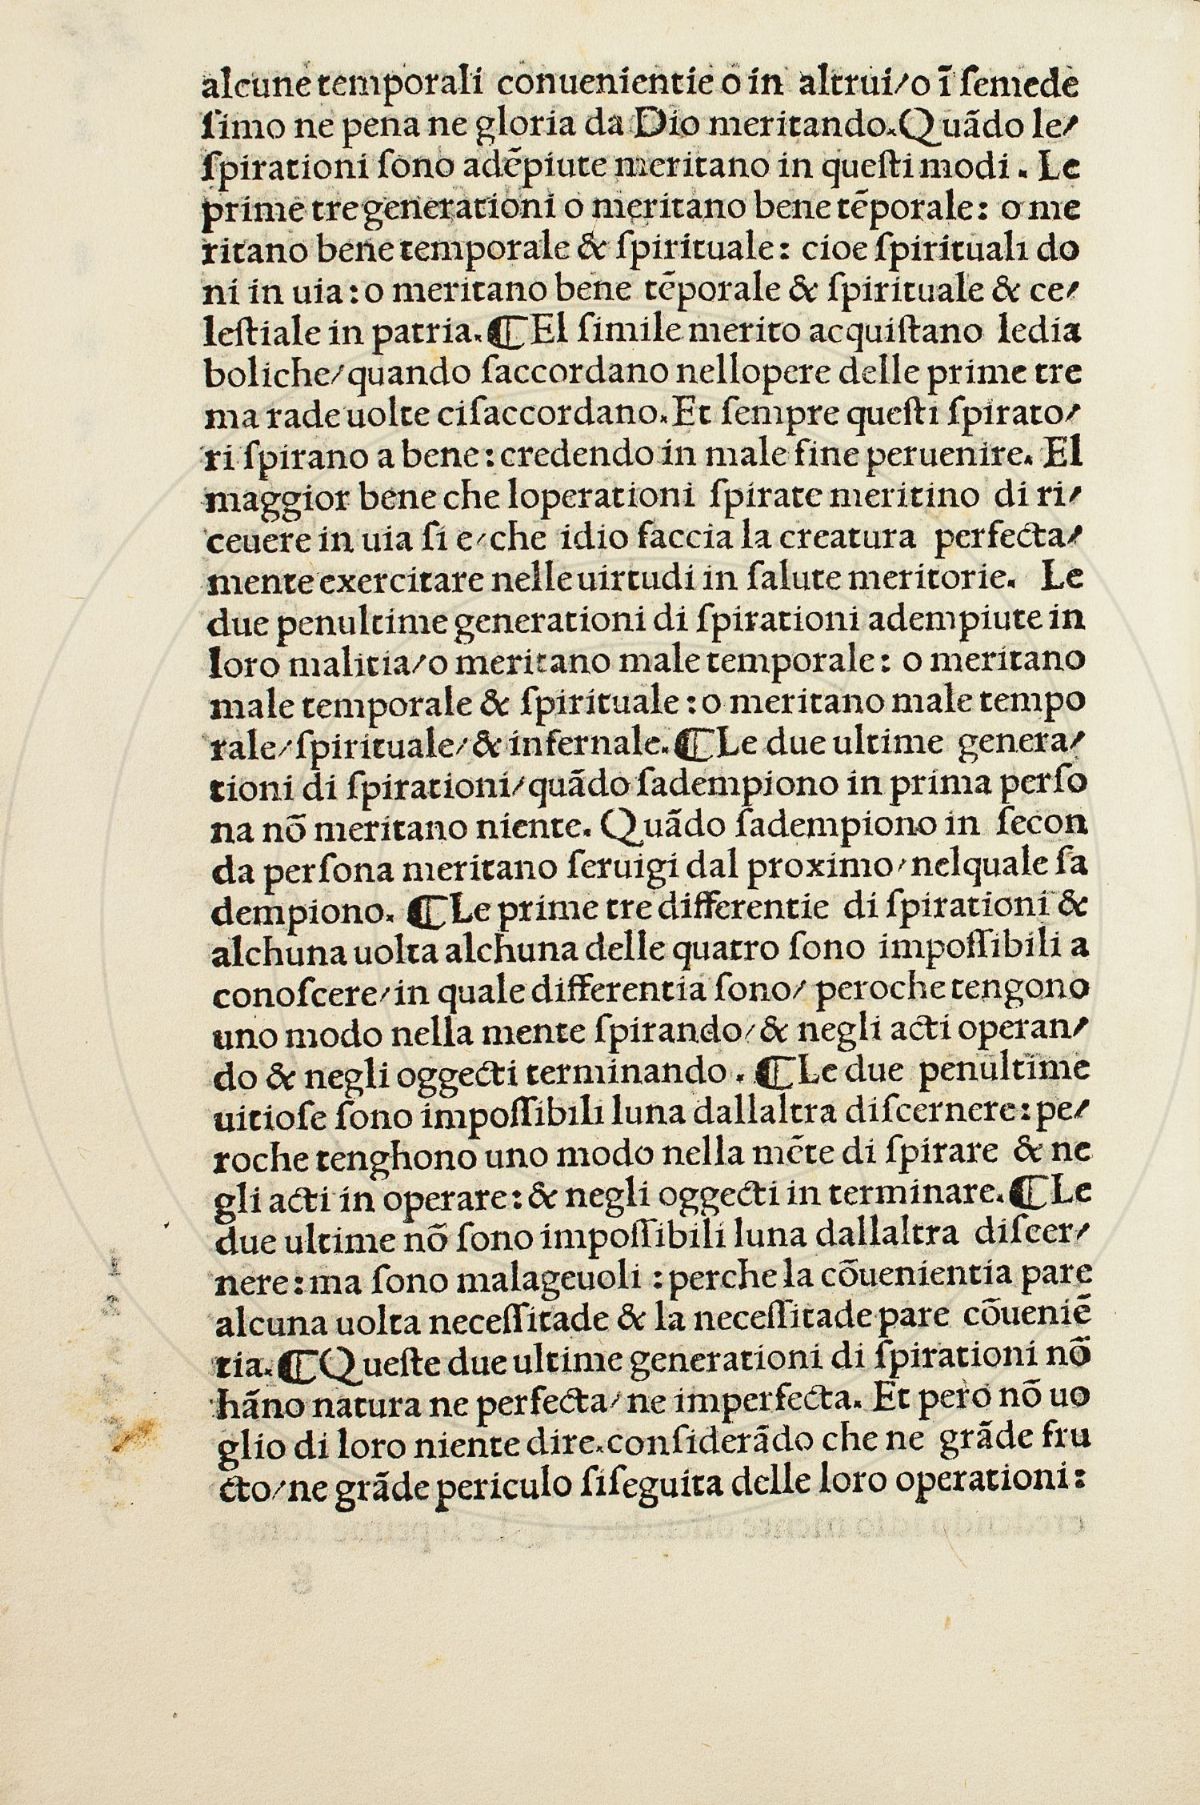 alcune temporali conuenientie o in altrui/o ī ſemede
ſimo ne pena ne gloria da Dio meritando. Quādo le/
ſpirationi ſono adēpiute meritano in queſti modi. Le
prime tre generationi o meritano bene tēporale: o me
ritano bene temporale & ſpirituale: cioe ſpirituali do
ni in uia: o meritano bene tēporale & ſpirituale & ce/
leſtiale in patria. ¶ El ſimile merito acquiſtano le dia
boliche/quando ſaccordano nellopere delle prime tre
ma rade uolte ci ſaccordano. Et ſempre queſti ſpirato/
ri ſpirano a bene: credendo in male fine peruenire. El
maggior bene che loperationi ſpirate meritino di ri/
ceuere in uia ſi e/che idio faccia la creatura perfecta/
mente exercitare nelle uirtudi in ſalute meritorie. Le
due penultime generationi di ſpirationi adempiute in
loro malitia/o meritano male temporale: o meritano
male temporale & ſpirituale: o meritano male tempo
rale/ſpirituale/& infernale. ¶ Le due ultime genera/
tioni di ſpirationi/quādo ſadempiono in prima perſo
na nō meritano niente. Quādo ſadempiono in ſecon
da perſona meritano ſeruigi dal proximo/nelquale ſa
dempiono. ¶ Le prime tre differentie di ſpirationi &
alchuna uolta alchuna delle quatro ſono impoſſibili a
conoſcere/in quale differentia ſono/ peroche tengono
uno modo nella mente ſpirando/& negli acti operan/
do & negli oggecti terminando. ¶ Le due penultime
uitioſe ſono impoſſibili luna dallaltra diſcernere: pe/
roche tenghono uno modo nella mēte di ſpirare & ne
gli acti in operare: & negli oggecti in terminare. ¶ Le
due ultime nō ſono impoſſibili luna dallaltra diſcer/
nere: ma ſono malageuoli: perche la cōuenientia pare
alcuna uolta neceſſitade & la neceſſitade pare cōueniē
tia. ¶ Queſte due ultime generationi di ſpirationi nō
hāno natura ne perfecta/ne imperfecta. Et pero nō uo
glio di loro niente dire. conſiderādo che ne grāde fru
cto/ne grāde periculo ſi ſeguita delle loro operationi: